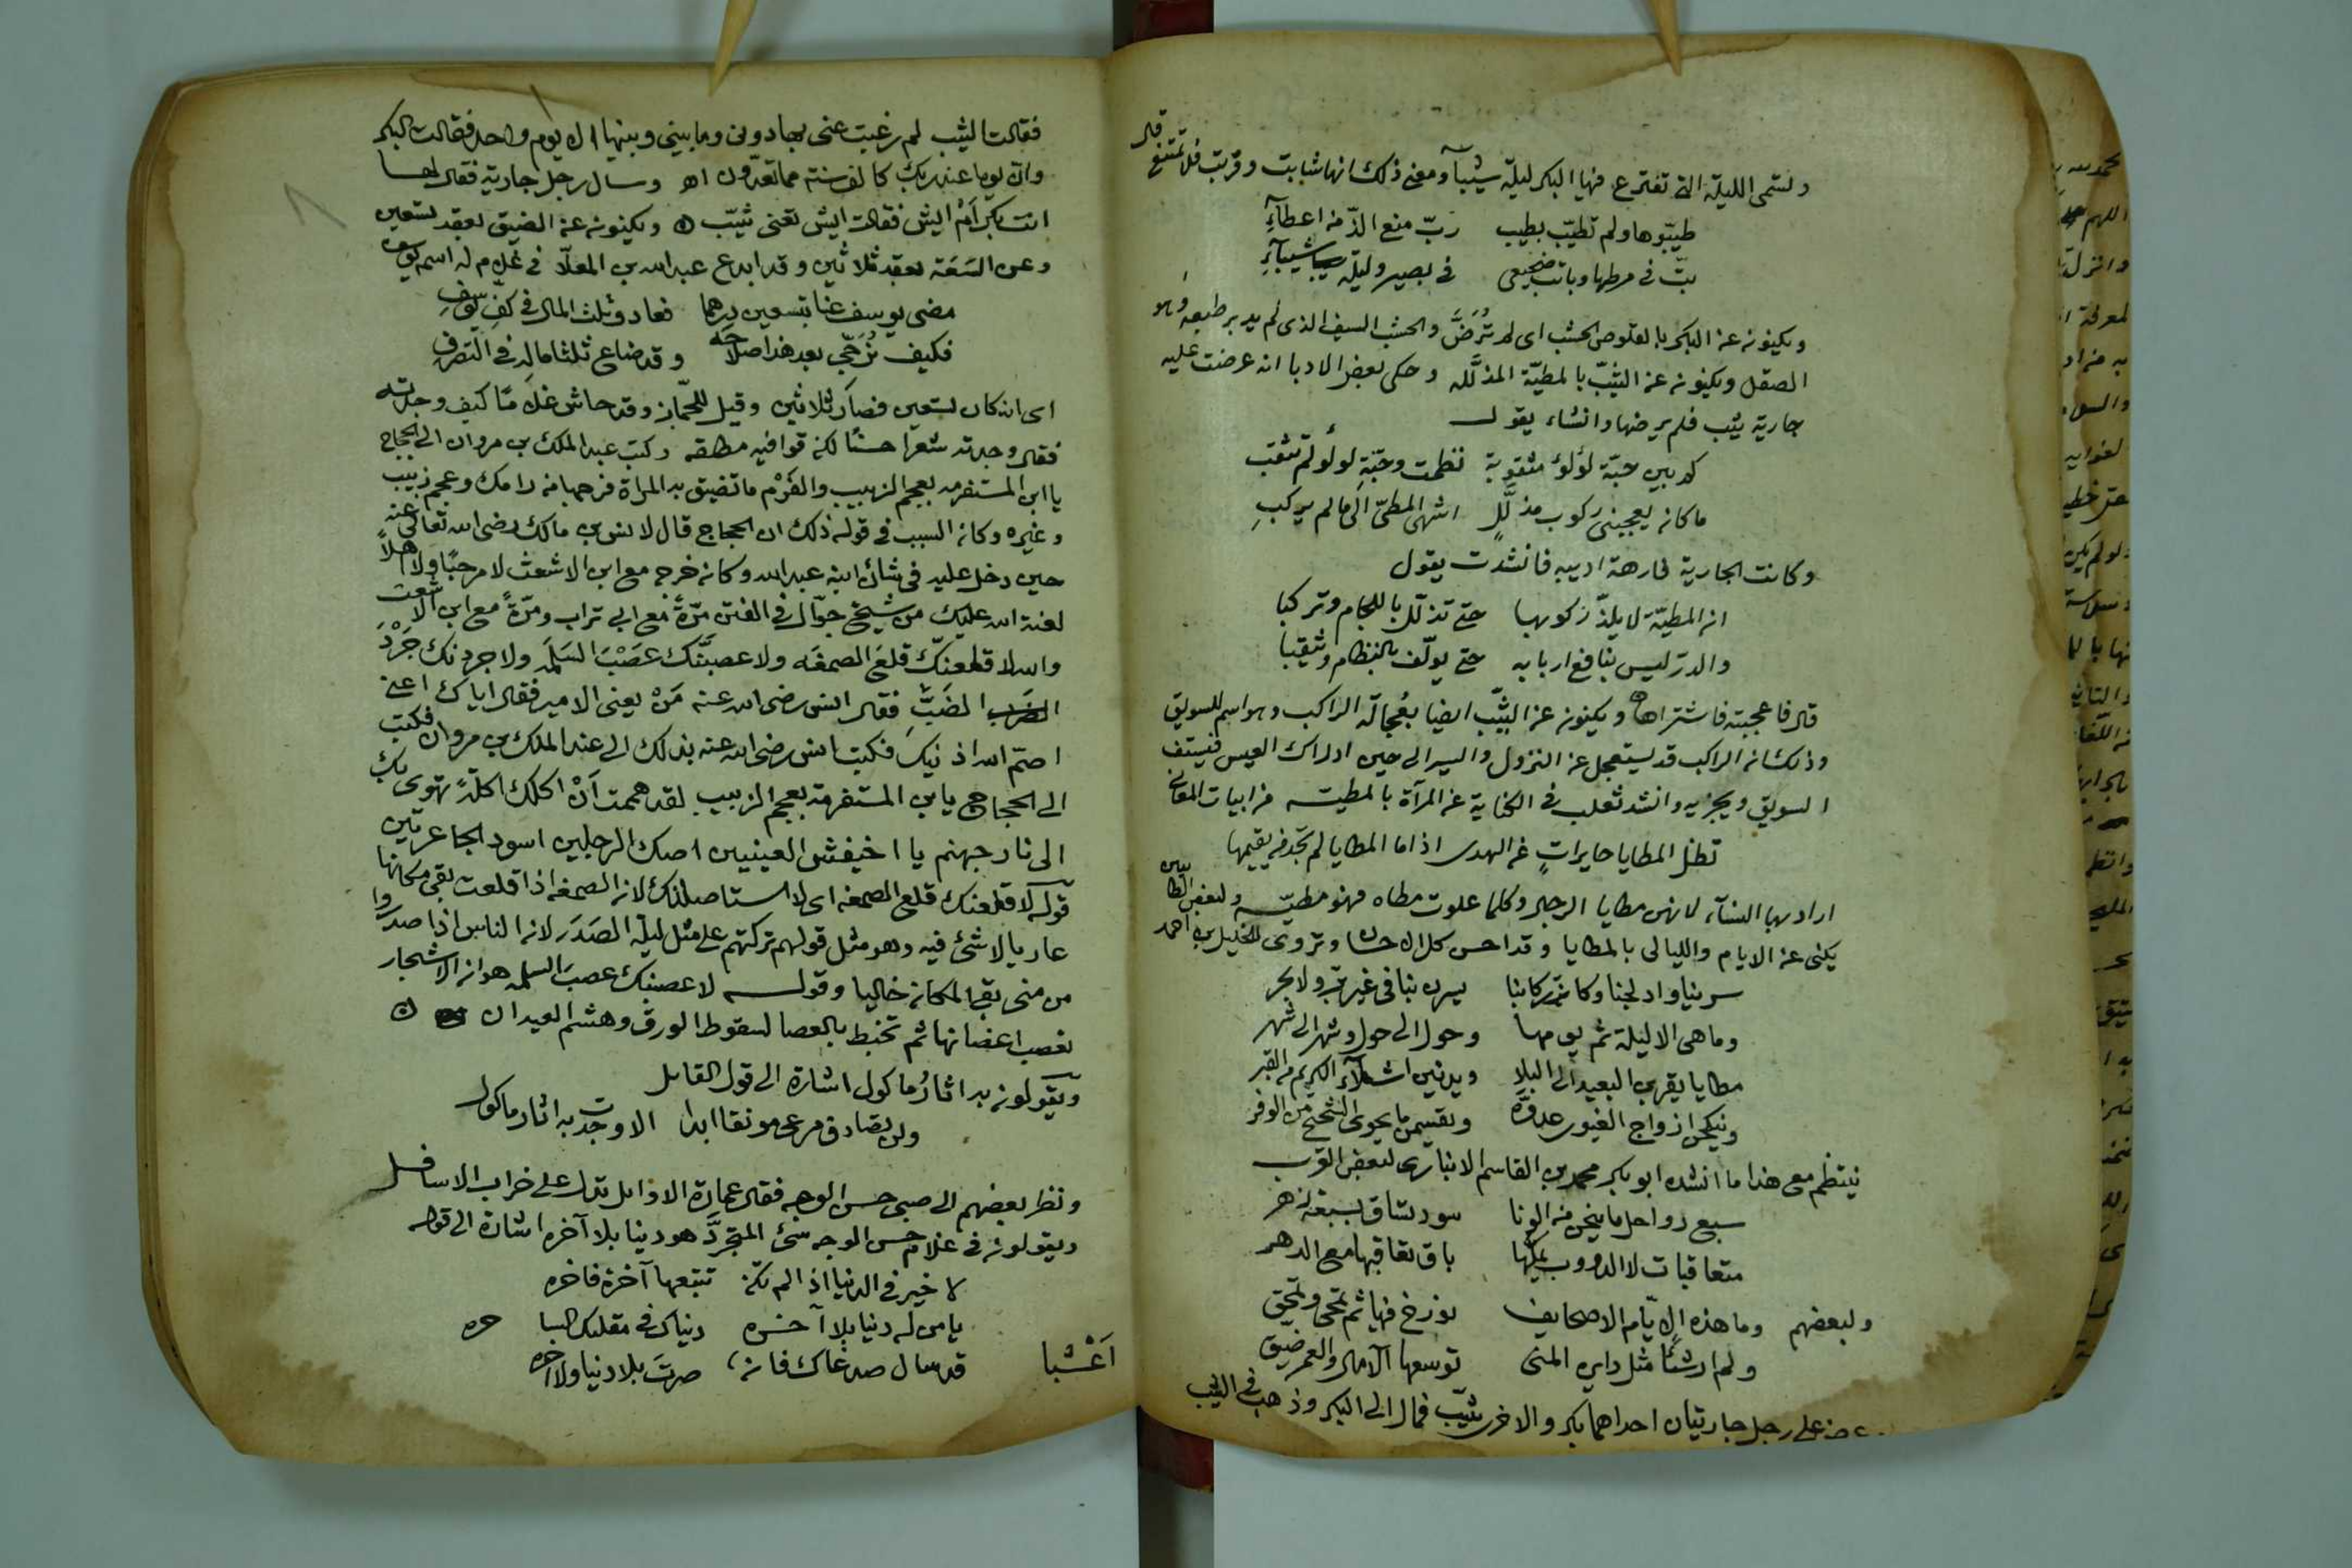 وتسمى الليلة التى تفترع فيها البكر ليلة شيبآ ومعنى ذلك انها شابت وقربت فلا تمتنع قال
طيّبوها ولم تطيّب بطيب ربّ منع الذّ من اعطآءِ
بتّ فى مرطها وباتت ضجيعى فى بصير وليلة شيبآءِ
ويكنون عن البكر بالقلوص الخشب اى لم تُرَضَّ والخشب السيف الذى لم يدبر طبعه وهو
الصقل ويكنون عن الثيّب بالمطيّة المذلّله وحكى بعض الادبا انه عرضت عليه
جارية ثيب فلم يرضها وانشاء يقول
كم بين حبّة لؤلؤ مثقوبة نظمت وحبّة لولو لم تثقب
ما كان يعجبنى ركوب مذلّلٍ اشهى المطىّ الى مالم يركبِ
وكانت الجارية فارهة اديبه فانشدت يقول
ان المطيّة لا يلذّ ركوبها حتى تذلّل باللجام وتركبا
والدر ليس بنافع اربابه حتى يولّف بالنظام وثيقبا
قال فاعجبته فاشتراها ويكنون عن الثيّب ايضا بعُجالة الراكب وهو اسم للسويق
وذلك ان الراكب قد يستعجل عن النزول والسير الى حين ادراك العيس فيستف
السويق ويجزيه وانشد ثعلب فى الكناية عن المرآة بالمطيه من ابيات المعانى
تظل المطايا حايراتٍ عن الهدى اذا ما المطايا لم تجد من يقيمها
اراد بها النسآء لانهن مطايا الرجال وكلما علوت مطاه فهو مطيّه ولبعض
يكنى عن الايام والليالى بالمطايا وقد احسن كل الاحسان وتروى للخليل بن احمد
سرينا وادلجنا وكانت ركابنا يسرن بنا فى غير بر ولا بحر
وما هى الا ليلة ثم يومها وحول الى حول وشهر الى شهر
مطايا يقربن البعيد الى البلا ويدنين اشلآء الكريم من القبر
وينكحن ازواج الغيور عدوّه ويقسمن ما يحوى الشحيح من الوفر
ينتظم مع هذا ما انشده ابو بكر محمد بن القاسم الانبارى لبعض العرب
سبع رواحل ما ينخن من الونا سود تساق بسبعة زهر
متعاقبات لا الدووب يملّها باق تعاقبها مع الدهر
ولبعضهم وما هذه الايّام الا صحايف نورخ فيها ثم تمحى وتمحق
ولم ار شئاً مثل دايره المنى توسعها الآمال والعمر ضيق
عرض على رجل جاريتان احداهما بكر والاخرى ثيّب فمال الى البكر وذهب فى الثيب
فقالت الثيب لم رغبت عنى بها دونى وما بينى وبينها الا يوم واحد فقالت البكر
وان يوما عند ربك كالف سنة مما تعدّون اه وسال رجل جارية فقال لها
انت بكر اَمْ ايش فقالت ايش تعنى ثيّب ٥ ويكنون عن الضيق بعقد تسعين
وعن السَعَة بعقد ثلاثين وقد ابدع عبد الله بن المعلّا فى غلام له اسم يوسف
مضى يوسف عنا بتسعين درهما فعاد وثلث المال فى كفّ يوسفِ
فكيف نُرَجّى بعد هذا صلاحه وقد ضاع ثلثا ماله فى التصرفِ
اى انه كان تسعين فصار ثلاثين وقيل للجمّاز وقد حاش غلاماً كيف وجدته
فقال وجدته شعرا حسنًا لكن قوافيه مطلقه وكتب عبد الملك بن مروان الى الحجاج
يا ابن المستفرمه بعجم الزبيب والفَرْم ما تضيق به المراة فرجها من رامك وعجم زبيب
وغيره وكان السبب فى قوله ذلك ان الحجاج قال لانس بن مالك رضى الله تعالى عنه
حين دخل عليه فى شان ابنه عبد الله وكان خرج مع ابن الاشعث لا مرحبًا ولا اهلاً
لعنة الله عليك من شيخ جوّال فى الفتن مرّةً مع ابى تراب ومرّةً مع ابن الاشعث
والله لاقلعنّك قلعَ الصمغَه ولاعصبنَّك عَصْبَ السَلَمَه ولاجردنك جَرْدَ
الضَبِّ فقال انس رضى الله عنه مَنْ يعنى الامير فقال اياك اعنى
اصمّ الله اذنيك فكتب انس رضى الله عنه بذلك الى عبد الملك بن مروان فكتب
الى الحجاج يابن المستفرمة بعجم الزبيب لقد هممت اَنْ اكلك اكلةً تهوى بك
الى نار جهنم يا اخيفش العينيين اصك الرجلين اسود الجاعرتين
قوله لاقلعنك قلع الصمغه اى لا استاصلنك لان الصمغه اذا قلعت بقى مكانها
عاريا لا شئ فيه وهو مثل قولهم تركتهم على مثل ليلة الصَدَر لان الناس اذا صدروا
من منى بقى المكان خاليا وقوله لاعصبنك عصبَ السلمه هو ان الاشجار
تعصب اغصانها ثم تخبط بالعصا لسقوط الورق وهشم العيدان ٥
ويقولون به اثارُ ماكول اشارة الى قول القائل
ولن تصادف مرعى مونقا ابدا الا وجدت به اثار ماكول
ونظر بعضهم الى صبى حسن الوجه فقال عمارة الاوايل تدل على خراب الاسافل
ويقولون فى غلام حسن الوجه سئ المتجرَّد هو دينا بلا آخره اشارة الى قوله
لا خير فى الدنيا اذا لم تكن تتبعها آخرة فاخره
يا من له دنيا بلا آخره دنياك فى مقلتك الساحره
قد سال صدغاك فان اَعْشبا صرتَ بلا دنيا ولا اخره